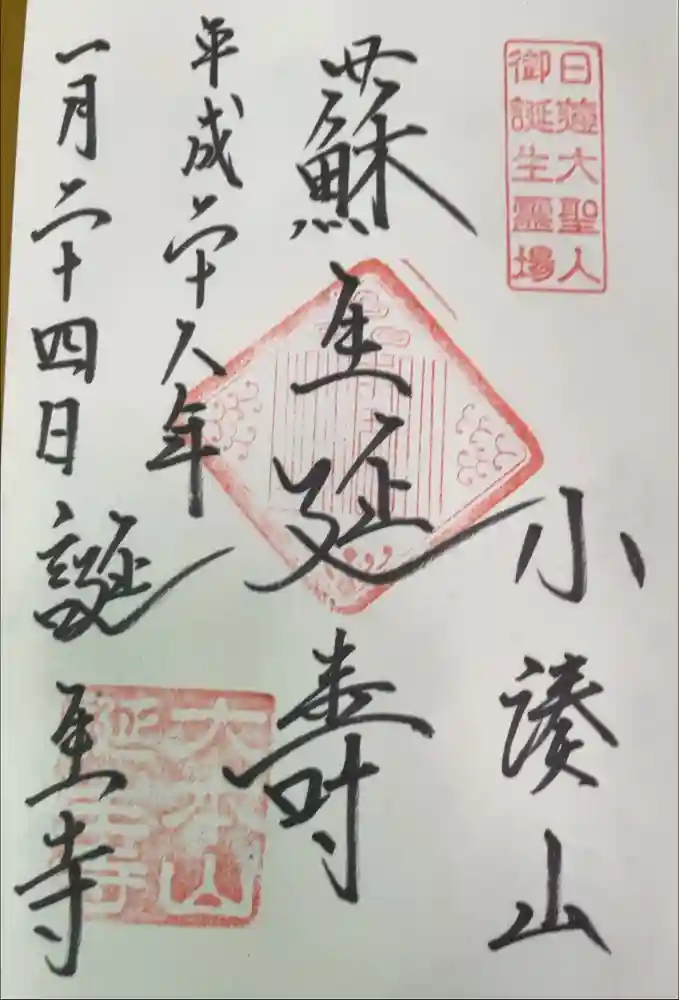 日蓮大聖人
御誕生霊場
小湊山
蘇生延寿
平成二十八年
一月二十四日
誕生寺
大本山
誕生寺